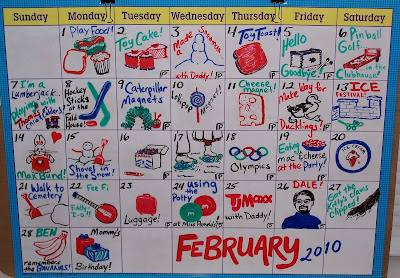 Sunday Monday Tuesday Wednesday Thursday Friday Saturday
1 Play Food!
2 Toy Cake!
3 Made Snowman with Daddy!
4 Toy Toast!
5 Hello Goodbye!
6 Pinball Golf in the Clubhouse!
7 I'm a Lumberjack.. playing with Thomas'
8 Hockey Sticks at the Field House!
9 Caterpillar Magnets
10 Magnet!
11 Cheese magnet!
12 Make Way for Ducklings!
13 ICE FESTIVAL!
14 Max Bund!
15 Shovel in the Snow!
16
17
18 Olympics
19 Eating mac & cheese at the Party!
20
21 Walk to Cemetery
22 Fee Fi Fiddly-I-o!!
23 Luggage!
24 using the Potty at Miss
25 TJ Maxx with Daddy!
26 DALE!
27 Got the Kitty's Claws Clipped!
28 BEN remembers the BANANAS!
Mommy's Birthday!
FEBRUARY 2010